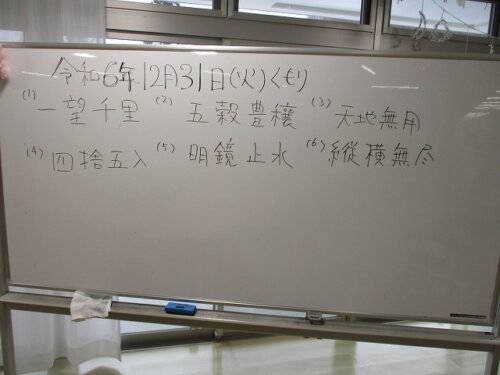 令和6年12月31日(火)くもり
(1)一望千里 (2)五穀豊穣 (3)天地無用
(4)四捨五入 (5)明鏡止水 (6)縦横無尽